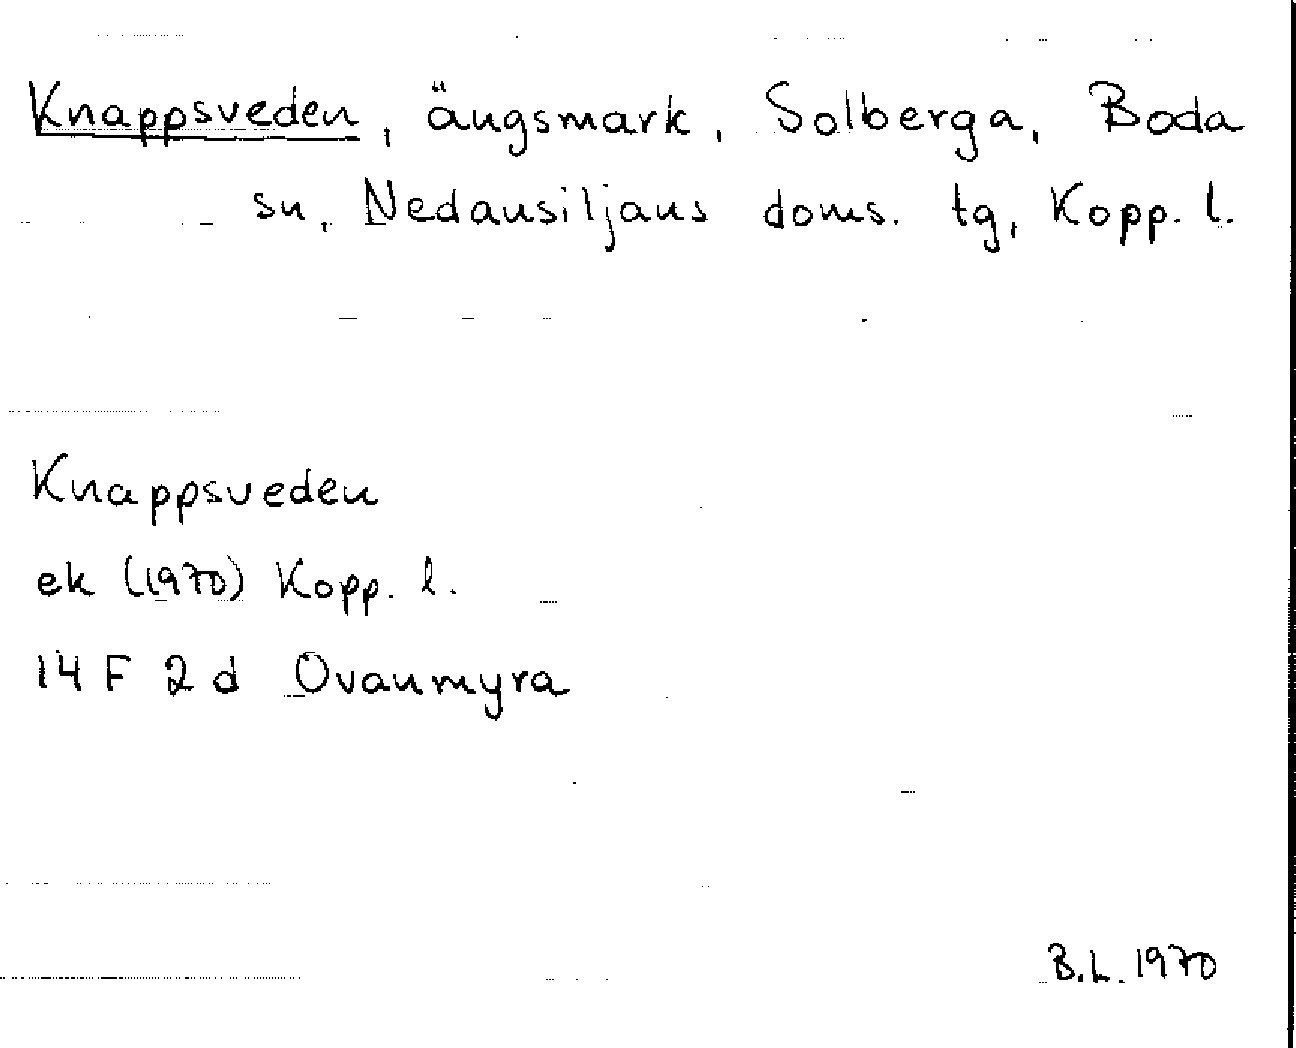 Knappsveden, ängsmark, Solberga, Boda
sn, Nedansiljans doms. tg, Kopp. l.
Knappsveden
ek (1970) Kopp. l.
14 F 2 d Ovanmyra
B.L. 1970